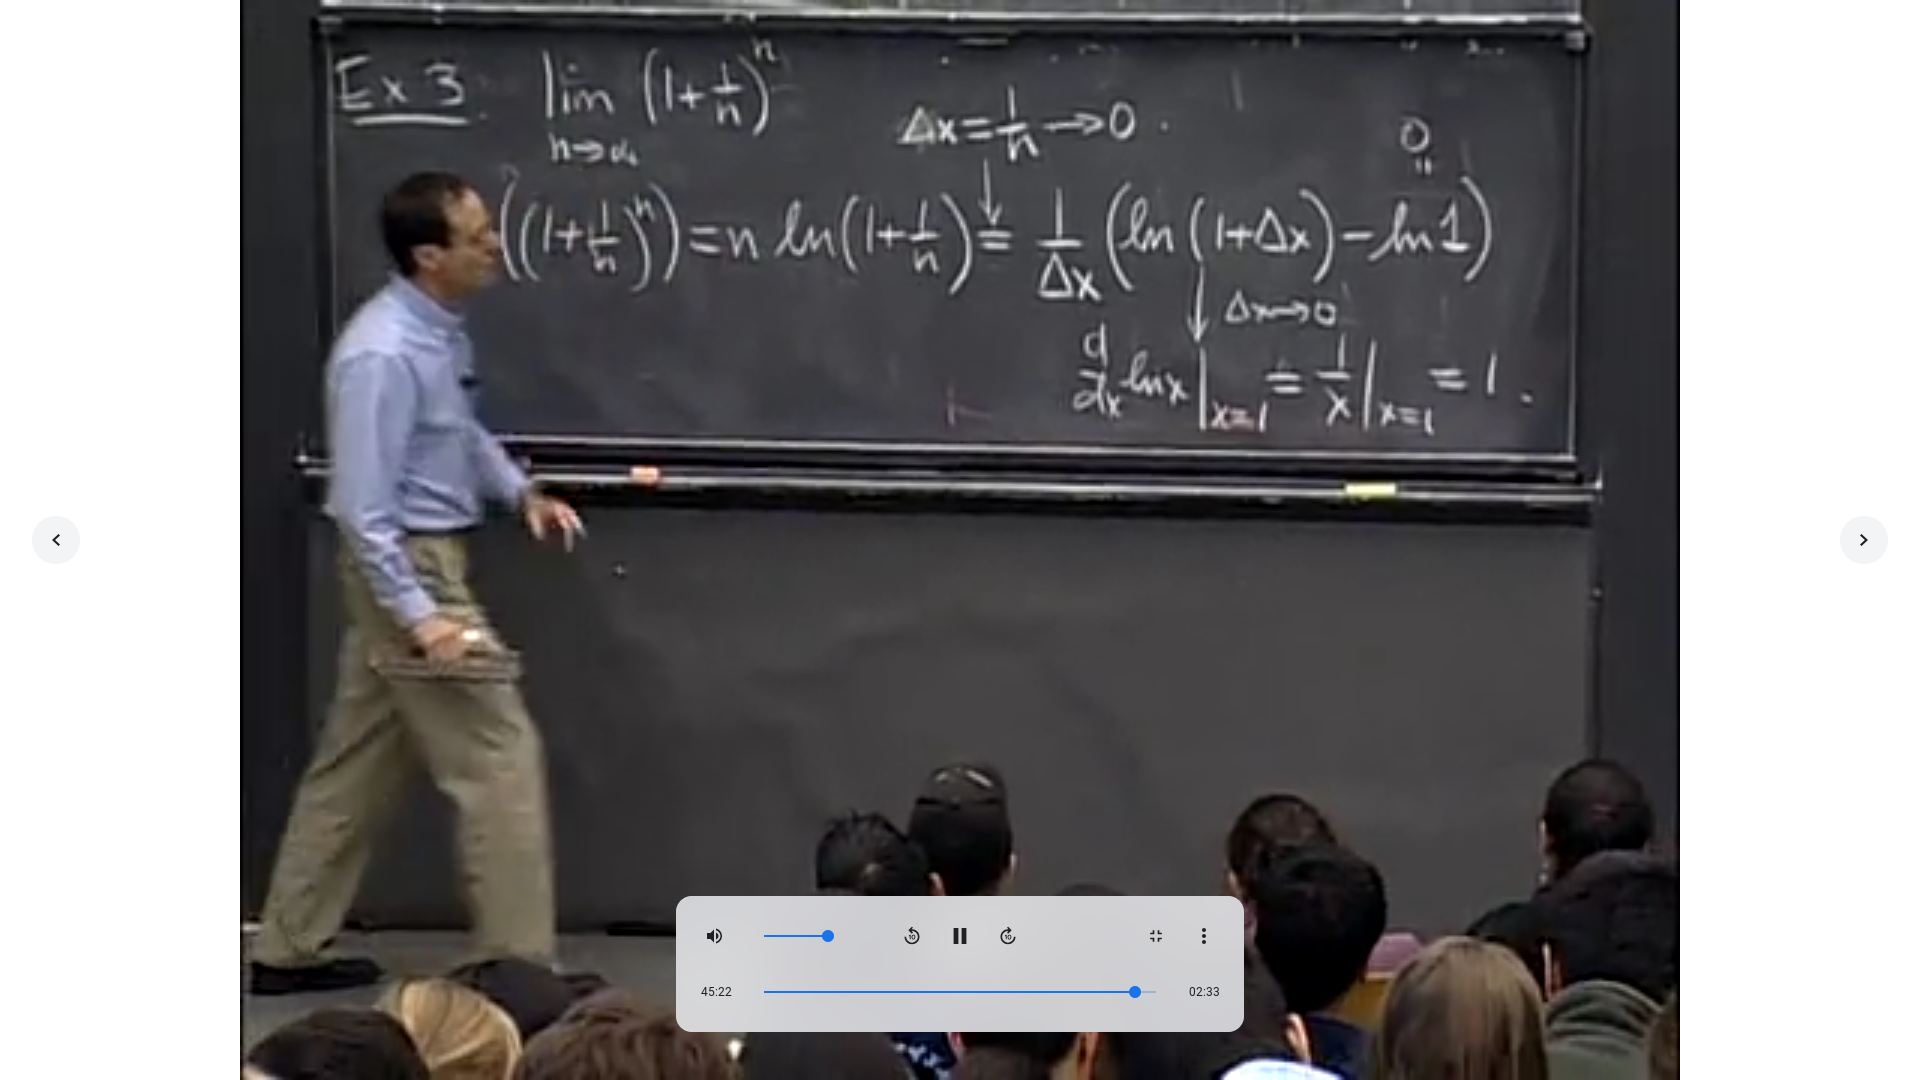 Ex 3. lim (1+1/n)^n
n→∞
Δx=1/n→0.
0
"
((1+1/n)^n)=n ln(1+1/n)=1/Δx(ln(1+Δx)-ln1)
↓ Δx→0
d/dx lnx|x=1 = 1/x|x=1 = 1.
10 10
45:22 02:33